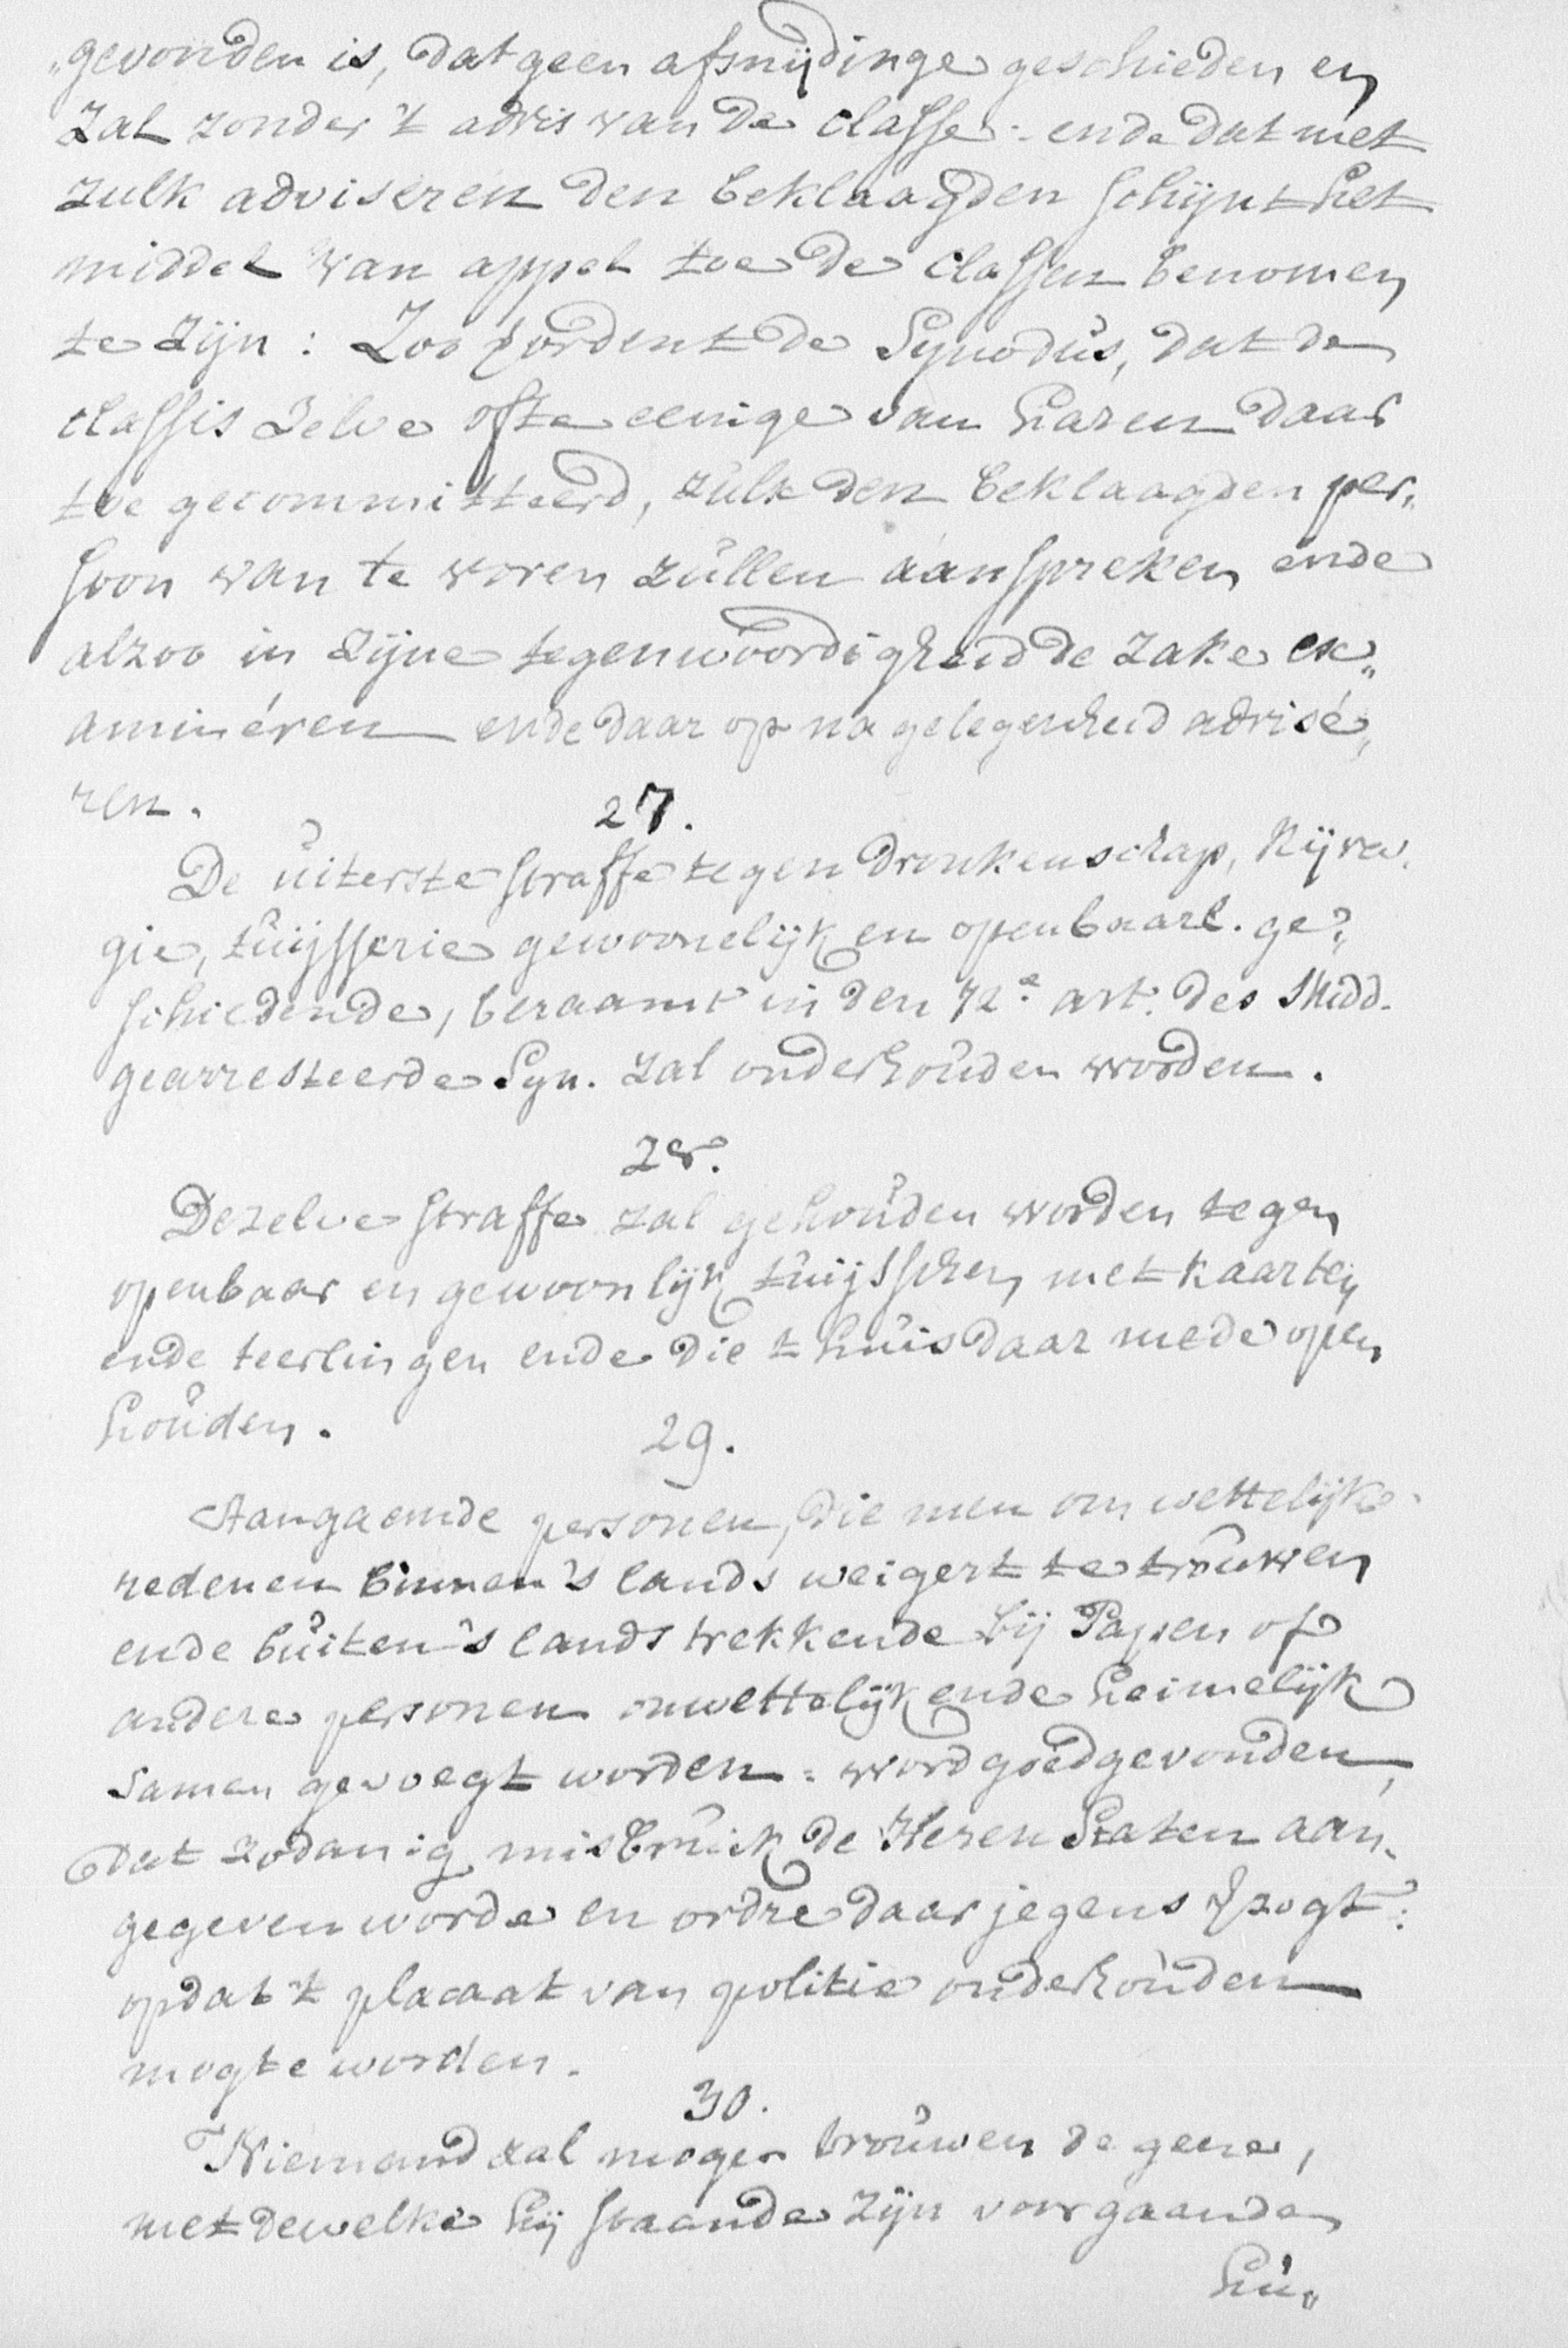 „gevonden is, dat geen afsnijdinge geschieden en
zal zonder 't advis van de classe: ende dat met
zulk adviseren den beklaagden schijnt het
middel van appel toe de classen benomen
te zijn: Zoo \fordent de Synodus, dat de
classis zelve ofte eenige van haren daar
toe gecommitteerd, zulk den beklaagden per„
soon van te voren zullen aanspreken ende
alzoo in zijne tegenwoordigheid de zake ex„
aminéren ende daar op na gelegenheid advisé„
ren.
27.
De uiterste straffe tegen dronkenschap, Kijva.
gie, tuijsserie gewoonelijk en openbaarl. ge„
schiedende, beraamt in den 72e art. des Midd.
gearresteerde Syn. zal onderhouden worden.
28.
Dezelve straffe zal gehouden worden tegen
openbaar en gewoonlijk tuijsschen met kaarten
ende teerlingen ende die 't huis daar mede open
houden.
29.
Aangaende personen, die men om wettelijke
redenen binnen 's lands weigert te trouwen
ende buiten 's lands trekkende bij Papen of
andere personen onwettelijk ende heimelijk
samen gevoegt worden: word goedgevonden,
dat zodanig misbruik de Heren Staten aan„
gegeven worde en ordre daar jegens gezogt:
opdat 't placaat van politie onderhouden
mogte worden.
30.
Niemand zal mogen trouwen de geene,
met dewelke hij staande zijn voorgaande
hu„